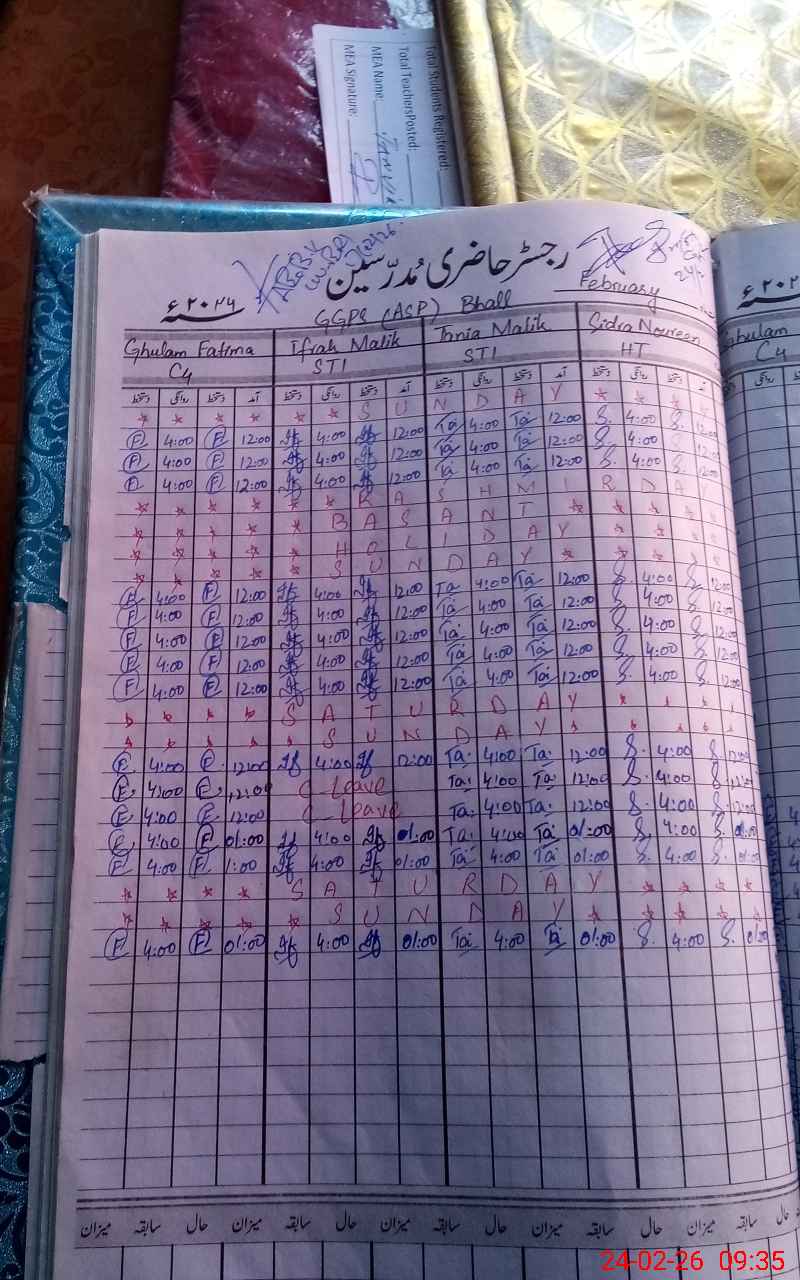 Total Students Registered:
Total TeachersPosted:
MEA Name:
MEA Signature:
رجسٹر حاضری مُدرّسین
۲۰۲۶ء
February
GGPS (ASP) Bhall
Ghulam Fatima Ifrah Malik Tania Malik Sidra Noureen
C4 STI STI HT
دستخط روانگی دستخط آمد دستخط روانگی دستخط آمد دستخط روانگی دستخط آمد دستخط روانگی دستخط آمد
* * * * * * S U N D A Y * * *
F 4:00 F 12:00 If 4:00 If 12:00 Ta 4:00 Ta 12:00 S. 4:00 S. 12:00
F 4:00 F 12:00 If 4:00 If 12:00 Ta 4:00 Ta 12:00 S. 4:00 S. 12:00
F 4:00 F 12:00 If 4:00 If 12:00 Ta 4:00 Ta 12:00 S. 4:00 S. 12:00
* * * * * * K A S H M I R D A Y
* * * * * B A S A N T * * * *
* * * * * H O L I D A Y * * *
* * * * * S U N D A Y * * * *
F 4:00 F 12:00 If 4:00 If 12:00 Ta 4:00 Ta 12:00 S. 4:00 S. 12:00
F 4:00 F 12:00 If 4:00 If 12:00 Ta 4:00 Ta 12:00 S. 4:00 S. 12:00
F 4:00 F 12:00 If 4:00 If 12:00 Ta 4:00 Ta 12:00 S. 4:00 S. 12:00
F 4:00 F 12:00 If 4:00 If 12:00 Ta 4:00 Ta 12:00 S. 4:00 S. 12:00
F 4:00 F 12:00 If 4:00 If 12:00 Ta 4:00 Ta 12:00 S. 4:00 S. 12:00
* * * * S A T U R D A Y * * * *
* * * * * S U N D A Y * * * * *
F 4:00 F 12:00 If 4:00 If 12:00 Ta 4:00 Ta 12:00 S. 4:00 S. 12:00
F 4:00 F 12:00 C Leave Ta 4:00 Ta 12:00 S. 4:00 S. 12:00
F 4:00 F 12:00 C Leave Ta 4:00 Ta 12:00 S. 4:00 S. 12:00
F 4:00 F 01:00 If 4:00 If 01:00 Ta 4:00 Ta 01:00 S. 4:00 S. 01:00
F 4:00 F 1:00 If 4:00 If 01:00 Ta 4:00 Ta 01:00 S. 4:00 S. 01:00
* * * * S A T U R D A Y * * * *
* * * * * S U N D A Y * * * * *
F 4:00 F 01:00 If 4:00 If 01:00 Ta 4:00 Ta 01:00 S. 4:00 S. 01:00
میزان سابقہ حال میزان سابقہ حال میزان سابقہ حال میزان سابقہ حال میزان سابقہ حال
Ghulam
C4
24-02-26 09:35